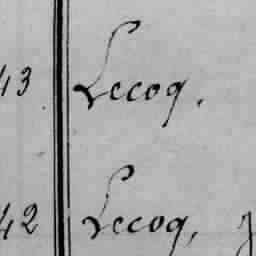 43 Lecoq.
42 Lecoq,